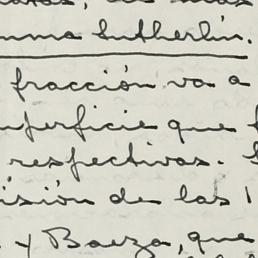 mma Sutherlin.
fracción va a
uperficie que
respectivas.
isión de las
y Baeza, que